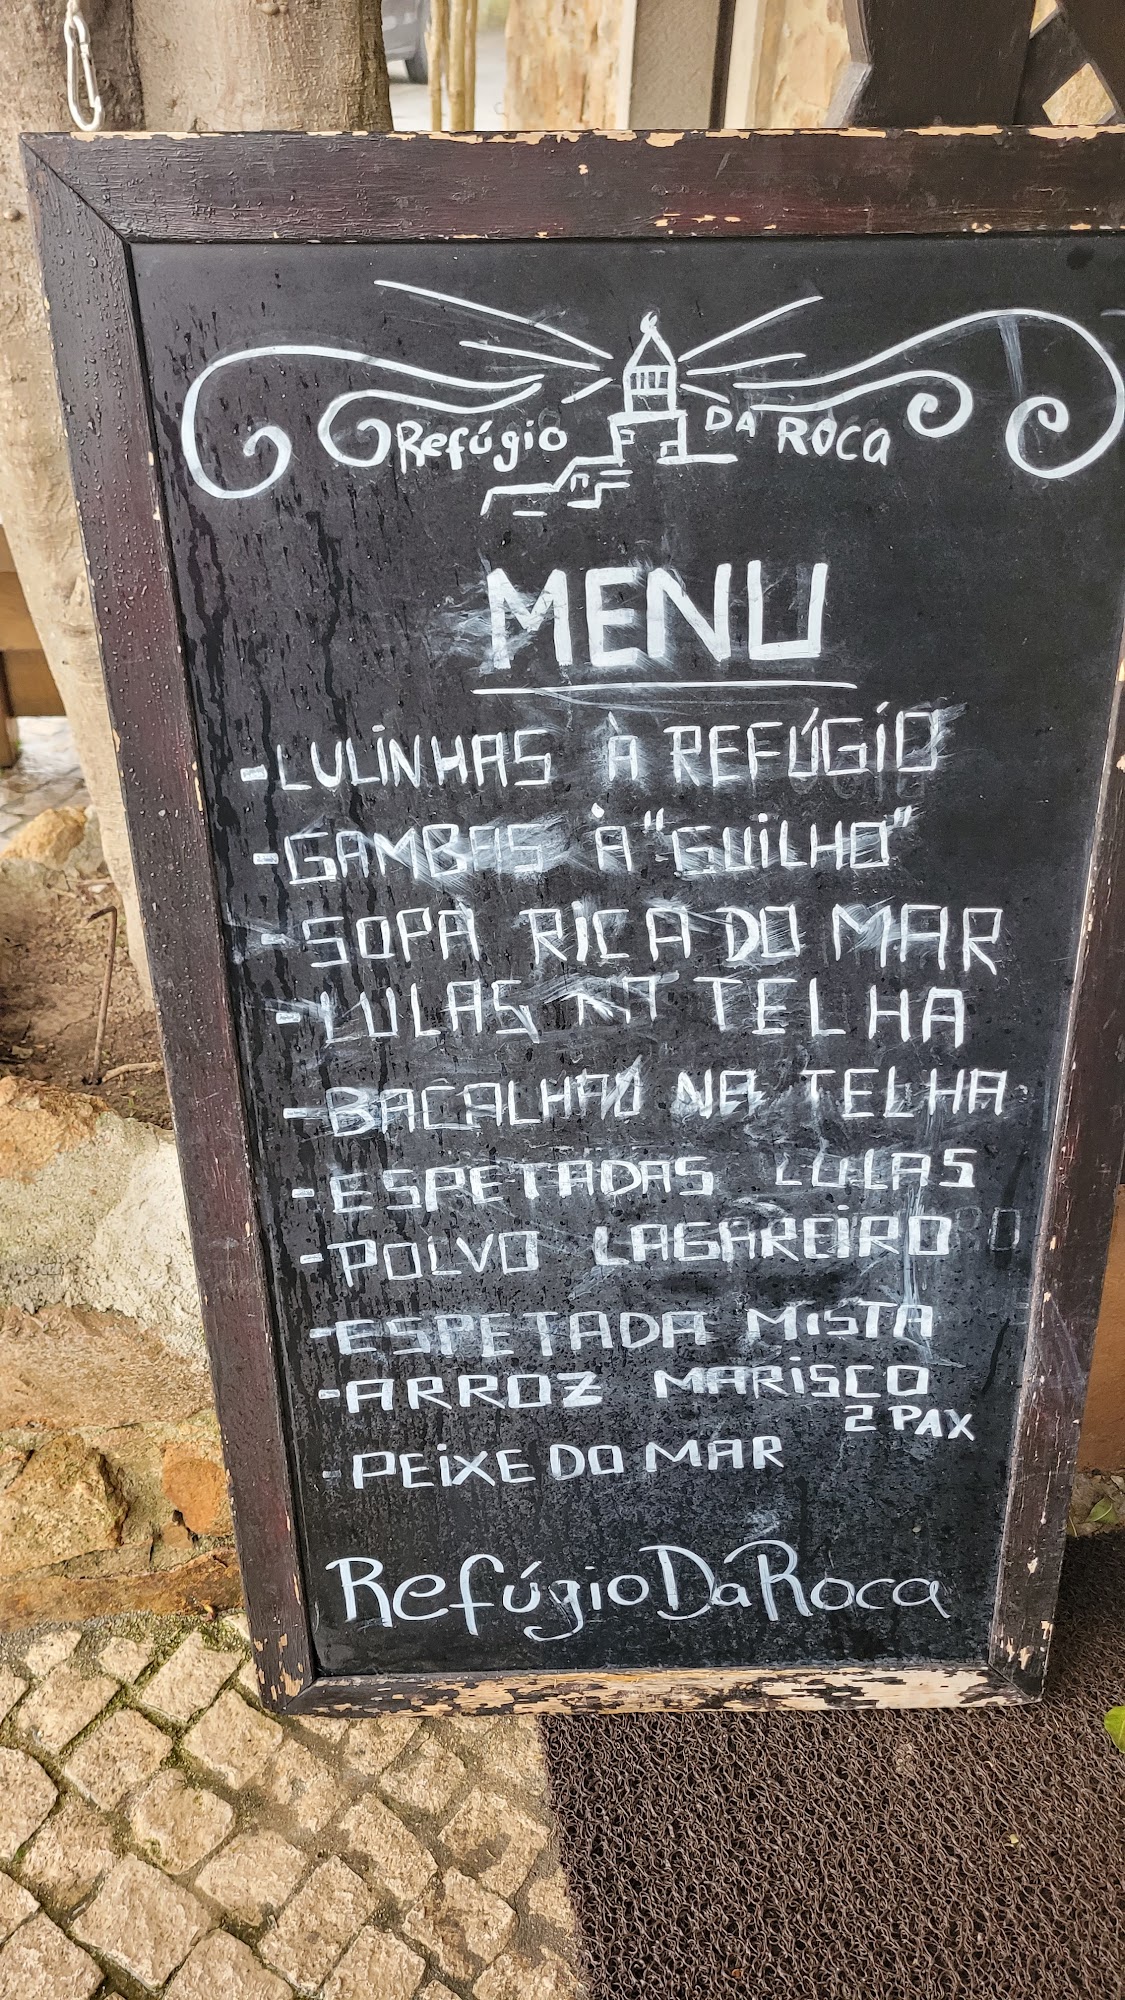 Refúgio DA ROCA
MENU
-LULINHAS À REFÚGIO
-GAMBAS À "GUILHO"
-SOPA RICA DO MAR
-LULAS NA TELHA
-BACALHAU NA TELHA
-ESPETADAS LULAS
-POLVO LAGAREIRO
-ESPETADA MISTA
-ARROZ MARISCO
2 PAX
-PEIXE DO MAR
Refúgio Da Roca